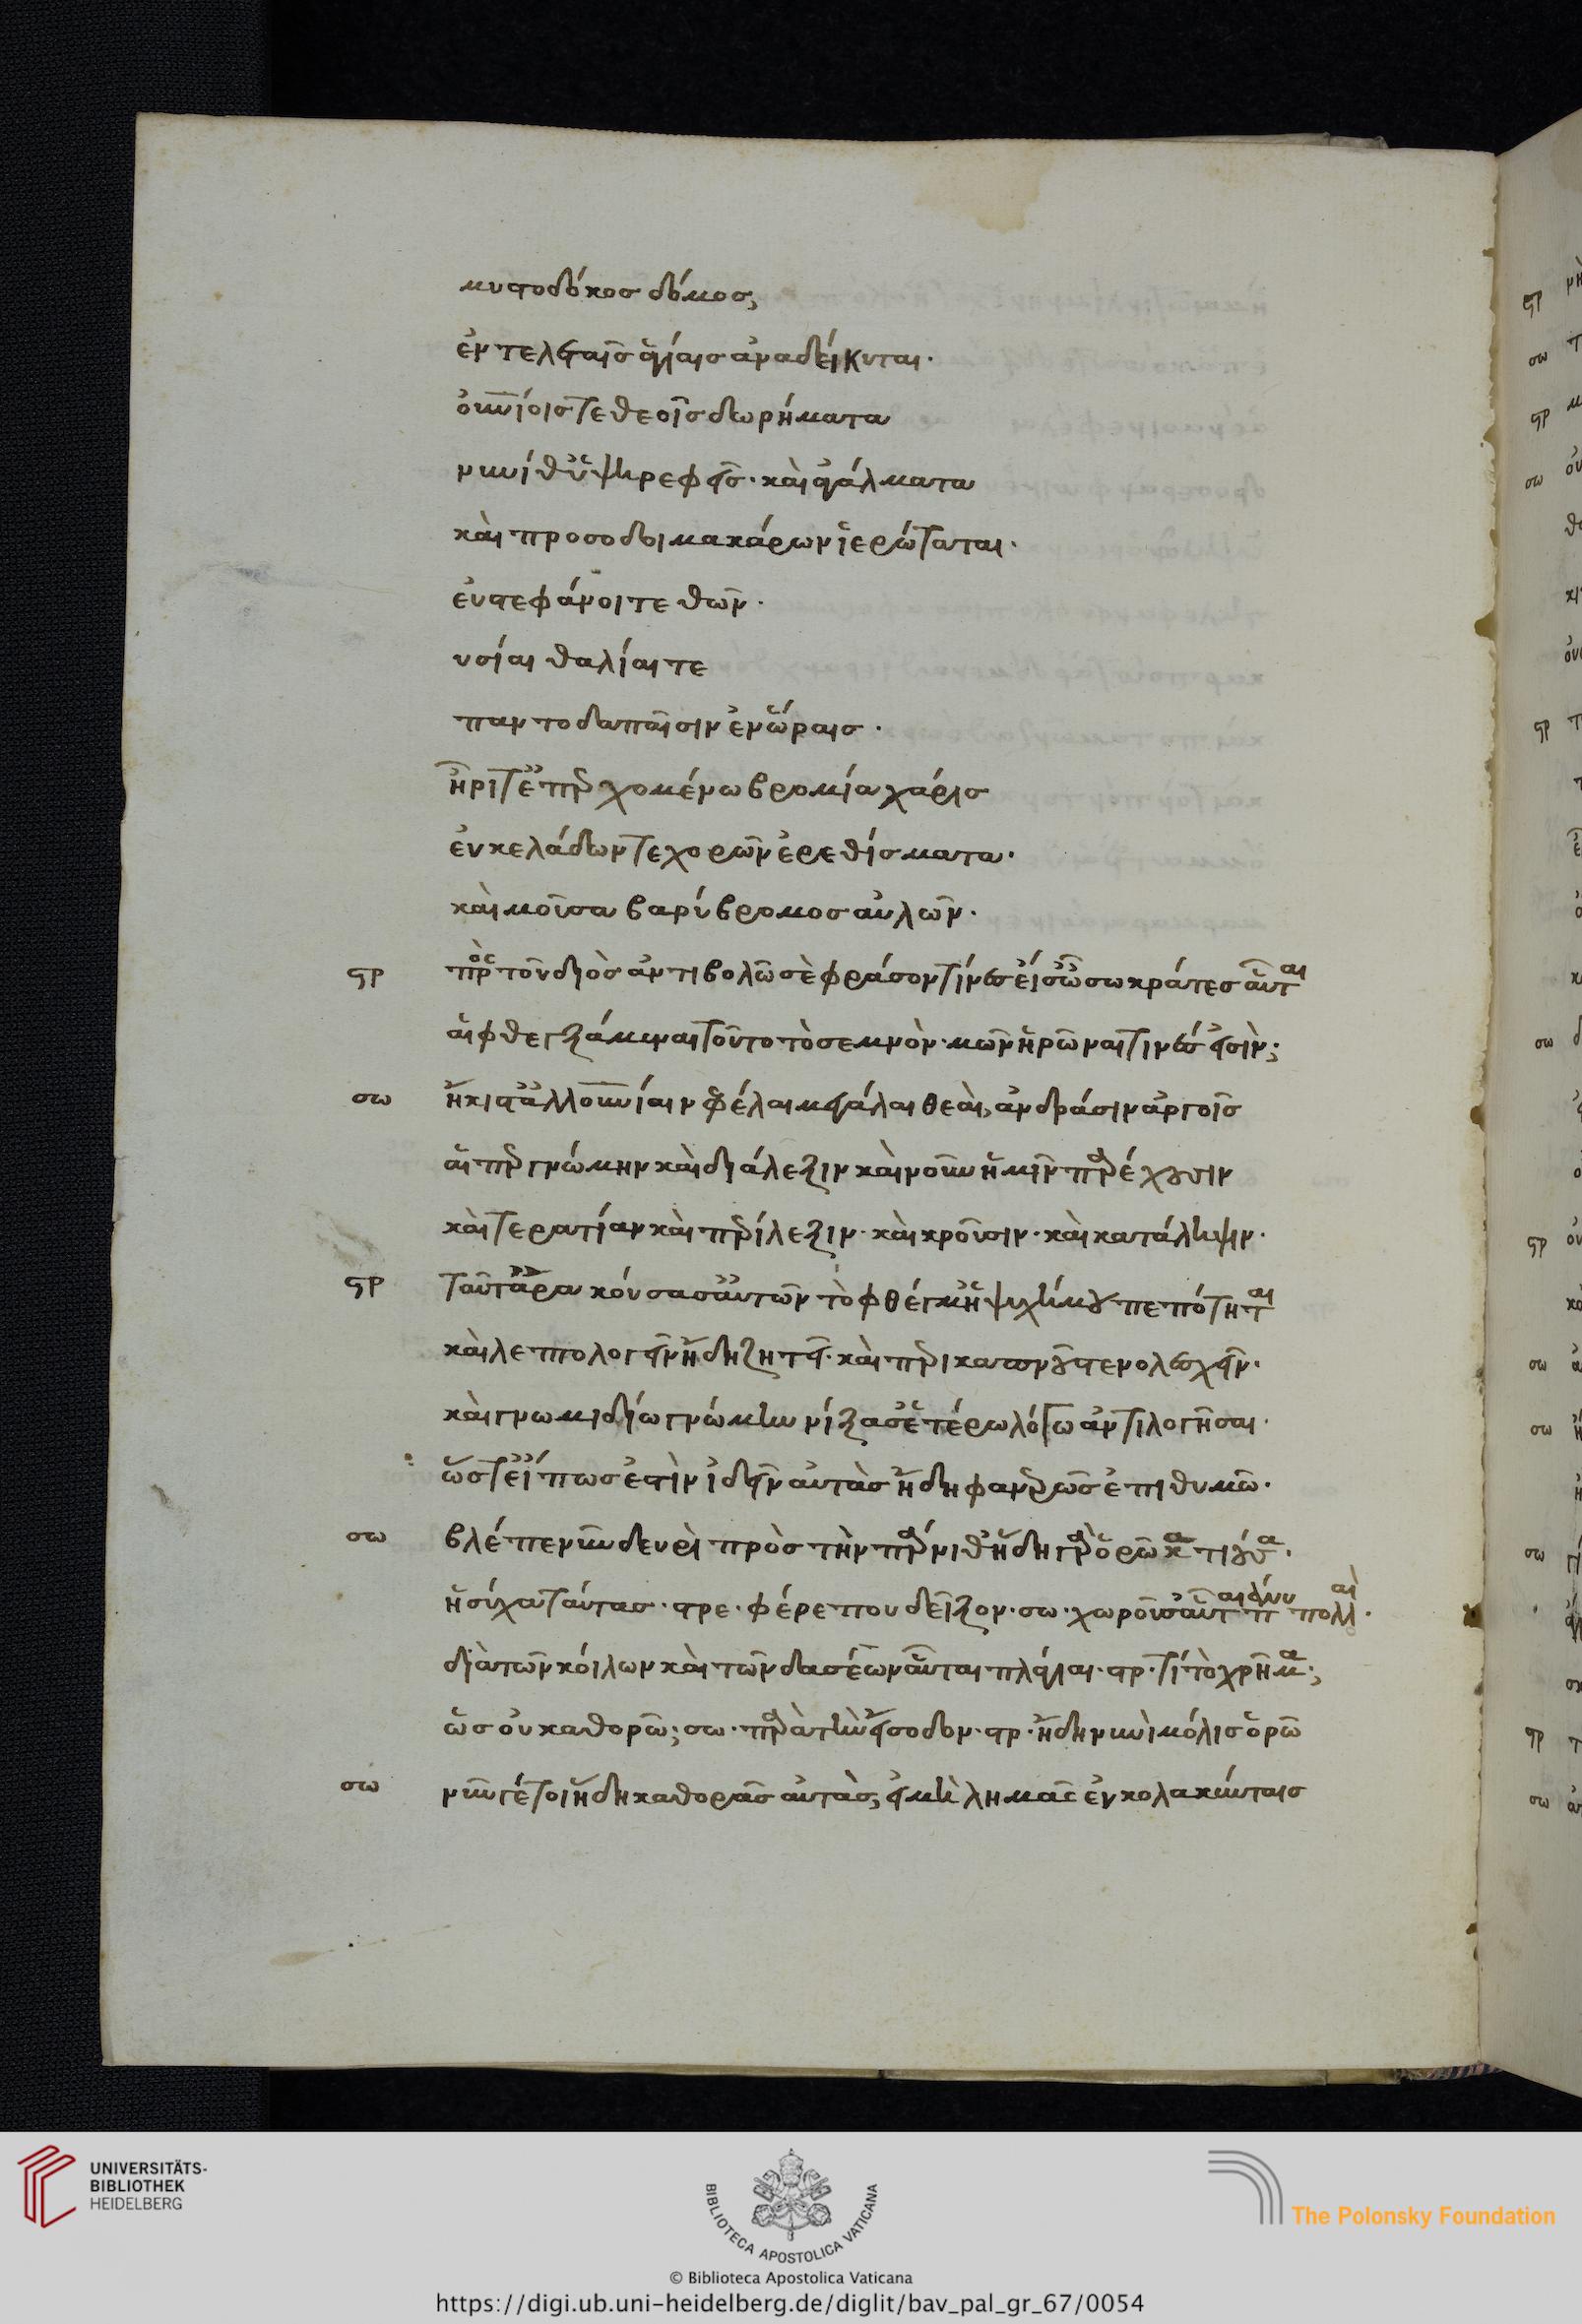 μυστοδόκος δόμος,
ἐν τελεταῖς ἁγίαις ἀναδείκνυται.
οὐρανίοις τε θεοῖς δωρήματα
ναοί θ' ὑψηρεφεῖς· καὶ ἀγάλματα
καὶ πρόσοδοι μακάρων ἱερώταται.
ἐυστέφανοί τε θεῶν.
υσίαι θαλίαι τε
παντοδαπαῖσιν ἐν ὥραις.
ἦρί τ' ἐπερχομένω βρομία χάρις
ἐυκελάδων τε χορῶν ἐρεθίσματα.
καὶ μοῦσα βαρύβρομος αὐλῶν.
στρ πρὸς τοῦ διὸς ἀντιβολῶ σὲ φράσον τίνες εἰσ' ὦ σώκρατες αὗται
αἱ φθεγξάμεναι τοῦτο τὸ σεμνὸν· μῶν ἡρῶναι τινές εἰσὶν;
σω ἥκιστ' ἀλλ' οὐράνιαι νεφέλαι μεγάλαι θεαὶ, ἀνδράσιν ἀργοῖς
αἵπερ γνώμην καὶ διάλεξιν καὶ νοῦν ἡμῖν παρέχουσιν
καὶ τερατείαν καὶ περίλεξιν· καὶ κροῦσιν· καὶ κατάληψιν.
στρ ταῦτ' ἄρ' ἀκούσασ' αὐτῶν τὸ φθέγμ' ἡ ψυχή μου πεπότηται
καὶ λεπτολογεῖν ἤδη ζητεῖ· καὶ περὶ καπνοῦ στενολεσχεῖν.
καὶ γνωμιδίω γνώμην νύξασ' ἑτέρω λόγω ἀντιλογῆσαι.
ὥστ' εἴ πως ἐστὶν ἰδεῖν αὐτὰς ἤδη φανερῶς ἐπιθυμῶ.
σω βλέπε νῦν δευρὶ πρὸς τὴν πάρνιθ' ἤδη γὰρ ὁρῶ κατιούσας.
ἡσύχα ταύτας· στρε· φέρε που δεῖξον· σω· χωροῦσ' αὗται πάνυ πολλαὶ.
διὰ τῶν κοίλων καὶ τῶν δασέων αὗται πλάγιαι· στρ· τί τὸ χρῆμα;
ὡς οὐ καθορῶ; σω· παρὰ τὴν εἴσοδον· στρ· ἤδη νυνὶ μόλις ὁρῶ
σω νῦν γέ τοι ἤδη καθορᾶς αὐτὰς, εἰ μὴ λημᾶς ἐν κολοκύνταις
UNIVERSITÄTS-
BIBLIOTHEK
HEIDELBERG
BIBLIOTECA APOSTOLICA VATICANA
The Polonsky Foundation
© Biblioteca Apostolica Vaticana
https://digi.ub.uni-heidelberg.de/diglit/bav_pal_gr_67/0054